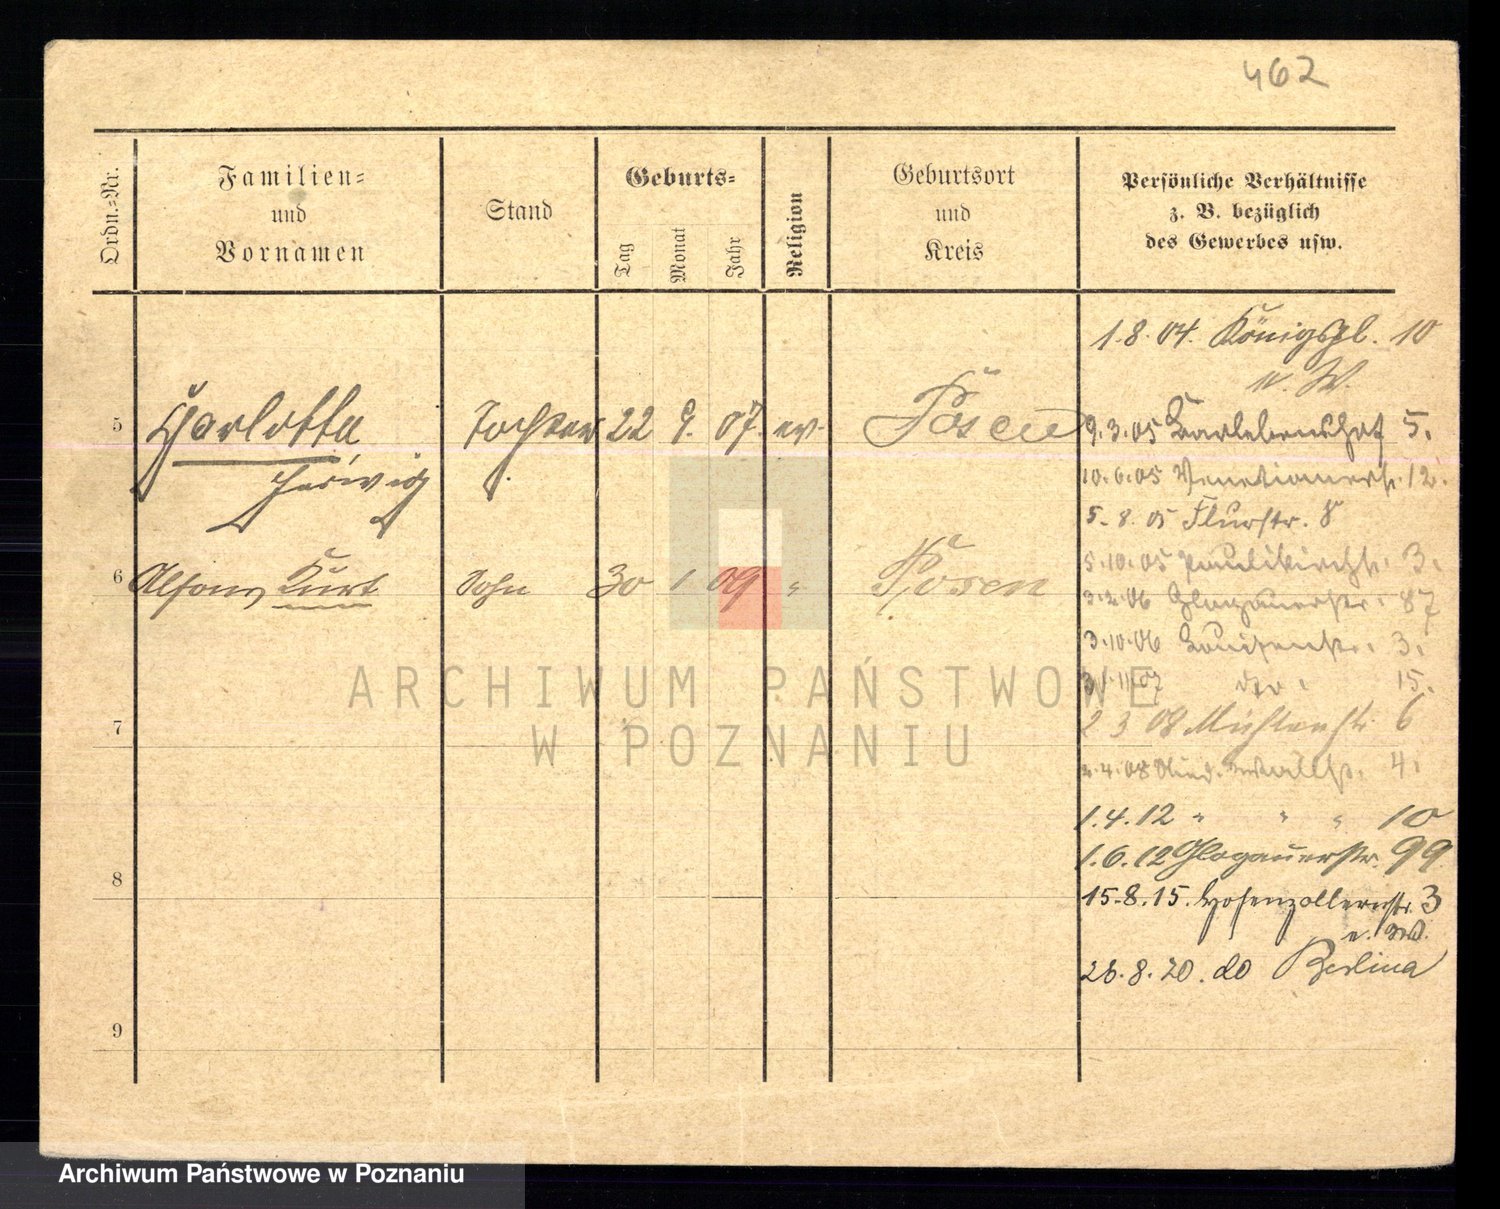 462
Ordn.-Nr.
Familien-
und
Vornamen
Stand
Geburts-
Tag
Monat
Jahr
Religion
Geburtsort
und
Kreis
Persönliche Verhältnisse
z. B. bezüglich
des Gewerbes usw.
1.8.04. Königspl. 10
n. W.
5 Charlotta Tochter 22 9. 07. ev. Posen
Hedwig
9.3.05 5.
10.6.05 Venetianerstr. 12.
5.8.05 Flurstr. 8
6 Alfons Kurt Sohn 30 1 09 " Posen
5.10.05 Paulikirchstr. 3.
3.2.06 Glogauerstr. 87
3.10.06 Louisenstr. 3.
11.07 dto. 15.
7
2 3 08 6
2.4.08 Wallstr. 4.
1.4.12 " " " 10
1.6.12 Glogauerstr. 99
8
15.8.15. Hohenzollernstr. 3
n. W.
26.8.20. do Berlina
9
ARCHIWUM PAŃSTWOWE
W POZNANIU
Archiwum Państwowe w Poznaniu